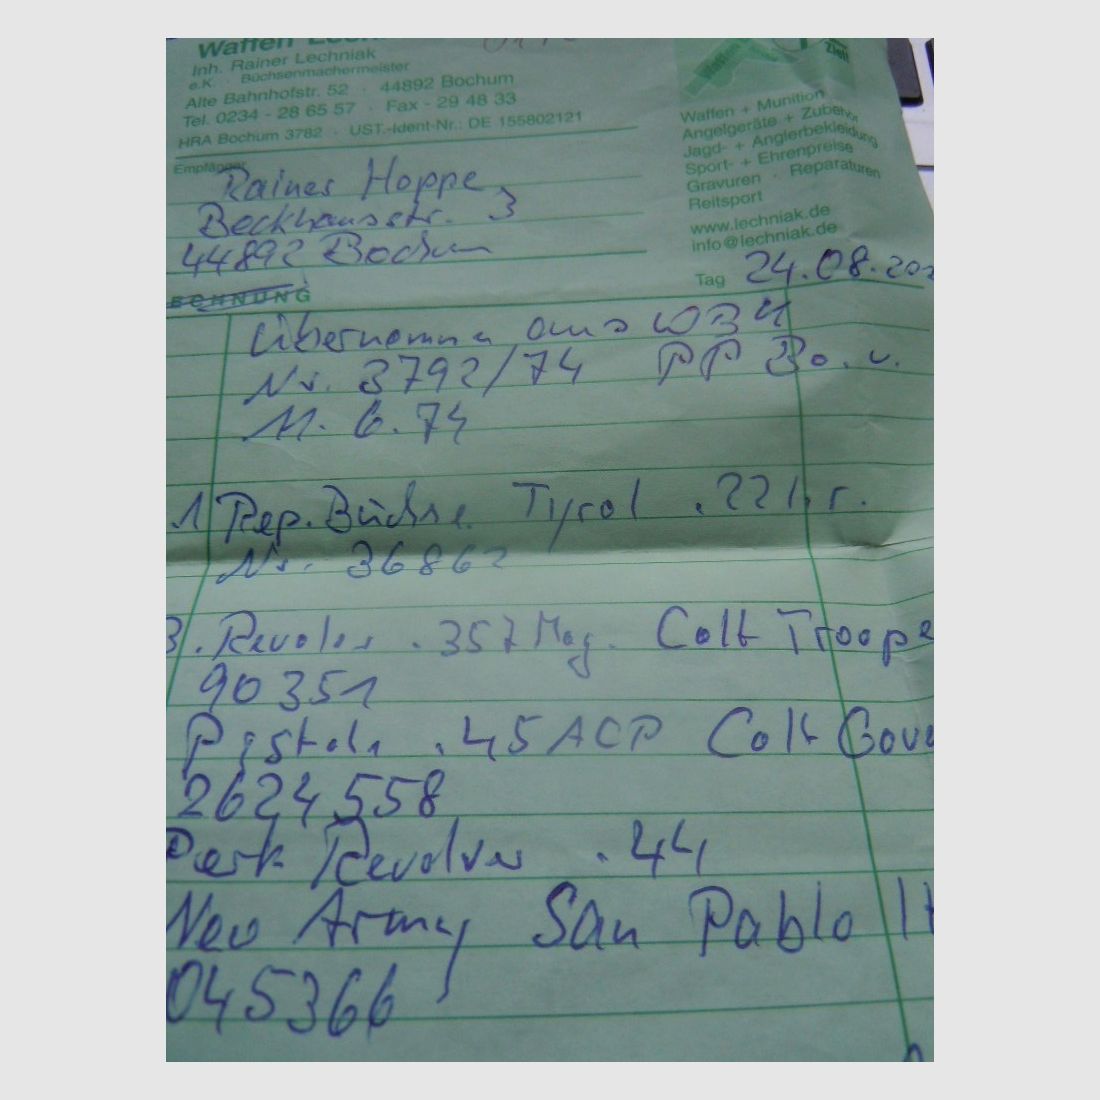 Waffen
Inh. Rainer Lechniak
e.K. · Büchsenmachermeister
Alte Bahnhofstr. 52 · 44892 Bochum
Tel. 0234 - 28 65 57 · Fax - 29 48 33
HRA Bochum 3782 · UST.-Ident-Nr.: DE 155802121
Waffen + Munition
Angelgeräte + Zubehör
Jagd- + Anglerbekleidung
Sport- + Ehrenpreise
Gravuren · Reparaturen
Reitsport
www.lechniak.de
info@lechniak.de
Empfänger
Rainer Hoppe
Beckhausstr. 3
44892 Bochum
Tag 24.08.20
ECHNUNG
Übernomm aus WBK
Nr. 3792/74 PP Bo. v.
11. 6. 74
1 Rep. Büchse Tyrol .22 l.r.
Nr. 36862
3. Revolver .357 Mag. Colt Troope
90351
Pistole .45 ACP Colt Gove
2624558
Perk Revolver .44
New Army San Pablo It
045366